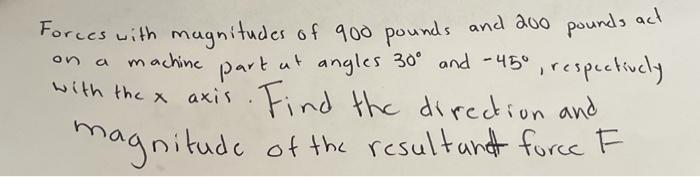 Forces with magnitudes of 900 pounds and 200 pounds act
on a machine part at angles 30° and -45°, respectively
with the x axis. Find the direction and
magnitude of the resultant force F